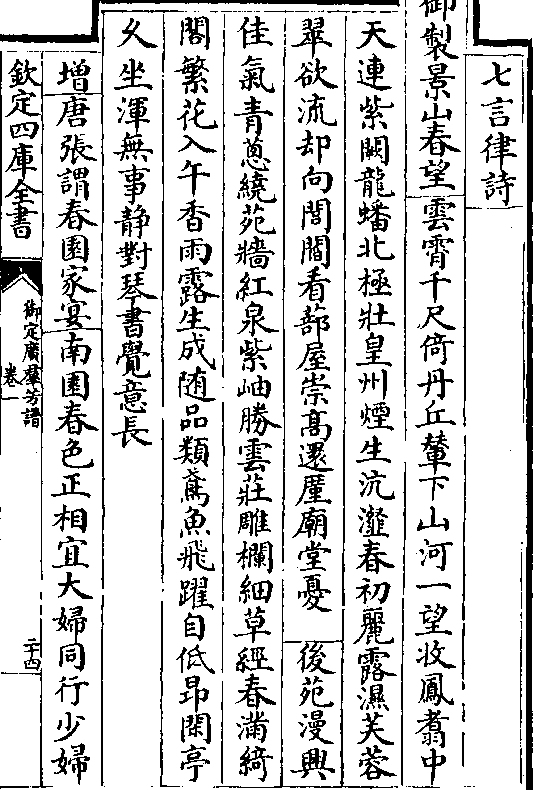 七言律詩
御製景山春望雲霄千尺倚丹丘輦下山河一望收鳳翥中
天連紫闕龍蟠北極壯皇州煙生沆瀣春初麗露濕芙蓉
翠欲流却向閭閻看蔀屋崇髙還廑廟堂憂 後苑漫興
佳氣青蔥繞苑牆紅泉紫岫勝雲莊雕欄細草經春滿綺
閣繁花入午香雨露生成随品類鳶魚飛躍自低昂閑亭
久坐渾無事静對琴書覺意長
增唐張謂春園家宴南園春色正相宜大婦同行少婦
欽定四庫全書
御定廣羣芳譜
卷一
二十四